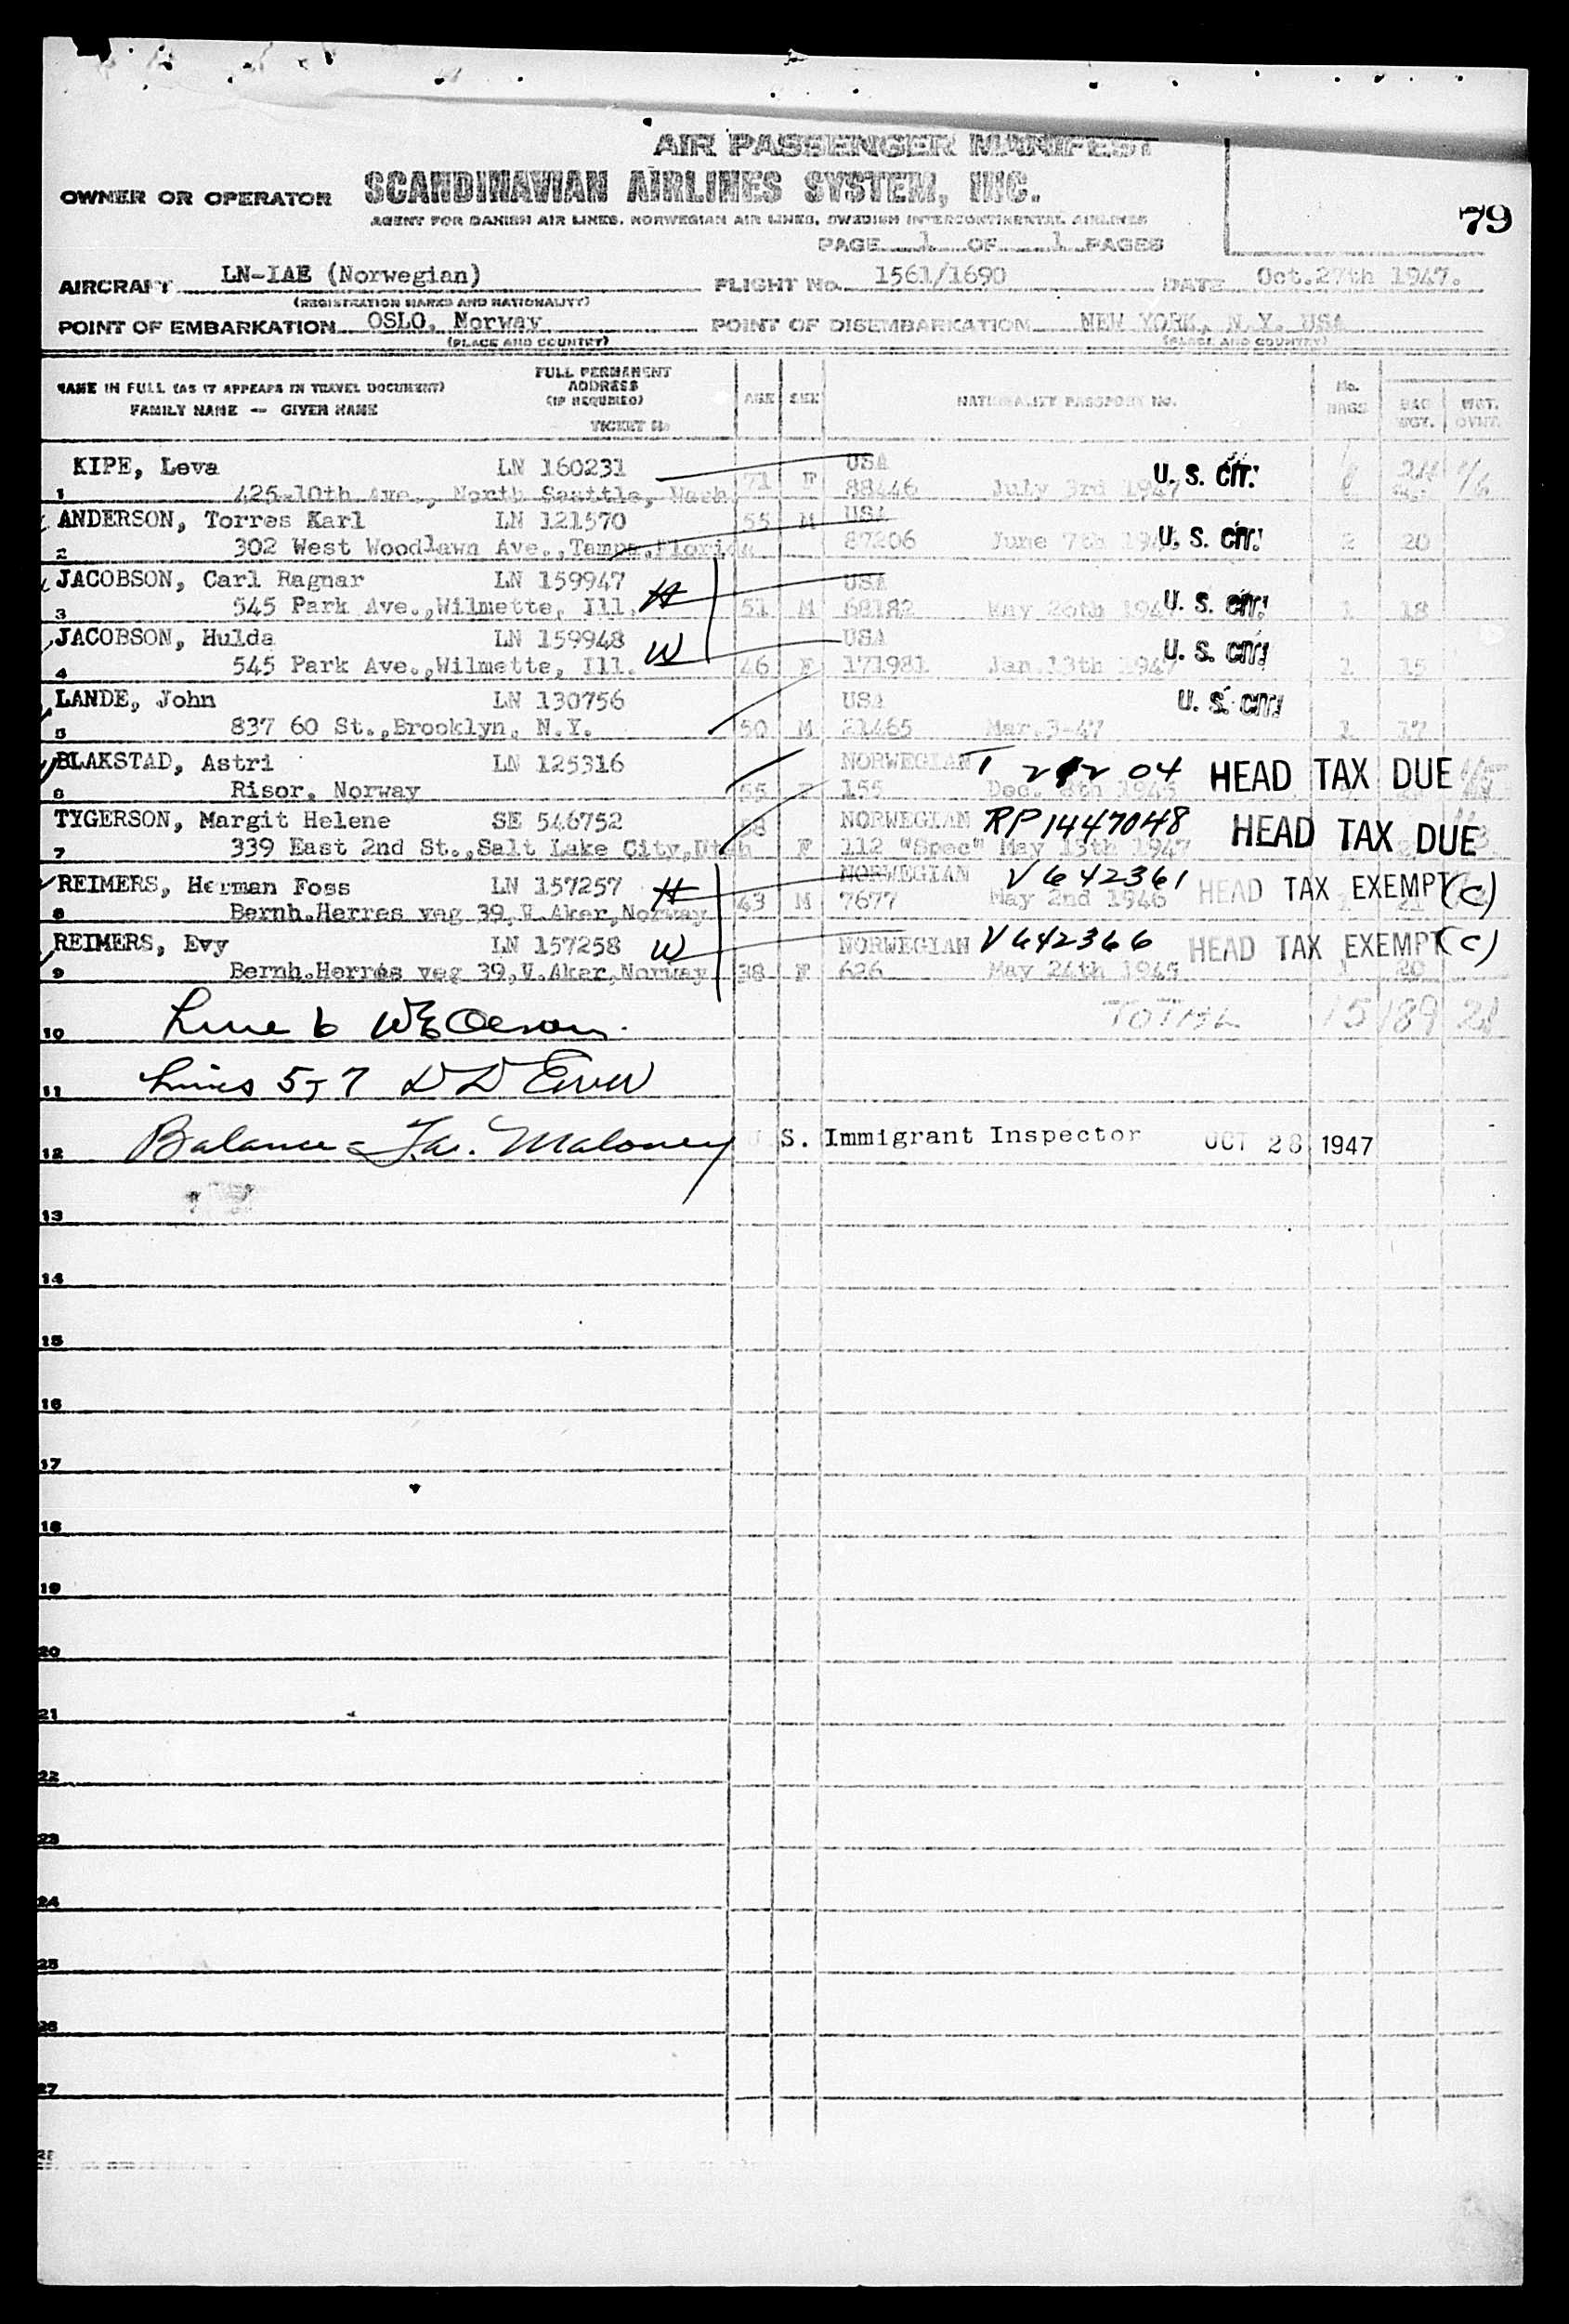 AIR PASSENGER MANIFEST
OWNER OR OPERATOR SCANDINAVIAN AIRLINES SYSTEM, INC.
AGENT FOR DANISH AIR LINES, NORWEGIAN AIR LINES, SWEDISH INTERCONTINENTAL AIRLINES
79
PAGE 1 OF 1 PAGES
AIRCRAFT LN-IAE (Norwegian) FLIGHT No. 1561/1690 DATE Oct.27th 1947.
(REGISTRATION MARKS AND NATIONALITY)
POINT OF EMBARKATION OSLO, Norway POINT OF DISEMBARKATION NEW YORK, N.Y. USA
(PLACE AND COUNTRY) (PLACE AND COUNTRY)
NAME IN FULL (AS IT APPEARS IN TRAVEL DOCUMENT) FULL PERMANENT ADDRESS (IF REQUIRED) AGE SEX NATIONALITY PASSPORT No. No. BAGS BAG WGT. WGT. OVHT.
FAMILY NAME -- GIVEN NAME TICKET No
KIPE, Leva LN 160231 USA U. S. CIT.
1 425-10th Ave., North Seattle, Wash. 71 F 88446 July 3rd 1947
ANDERSON, Torres Karl LN 121570 55 M USA U. S. CIT.
2 302 West Woodlawn Ave.,Tampa,Florida 87206 June 7th 2 20
JACOBSON, Carl Ragnar LN 159947 H USA U. S. CIT.
3 545 Park Ave.,Wilmette, Ill. 51 M 68182 May 1 18
JACOBSON, Hulda LN 159948 W USA U. S. CIT.
4 545 Park Ave.,Wilmette, Ill. 46 F 171981 Jan.13th 1947 1 15
LANDE, John LN 130756 USA U. S. CIT.
5 837 60 St.,Brooklyn, N.Y. 50 M 21465 Mar.3-47 1 17
BLAKSTAD, Astri LN 125316 NORWEGIAN HEAD TAX DUE
6 Risor, Norway 55 F 155 Dec.
TYGERSON, Margit Helene SE 546752 58 NORWEGIAN RP1447048 HEAD TAX DUE
7 339 East 2nd St.,Salt Lake City,Utah F 112 "Spec" May 13th 1947
REIMERS, Herman Foss LN 157257 H NORWEGIAN V642361 HEAD TAX EXEMPT (C)
8 Bernh.Herres veg 39,V.Aker,Norway 43 M 7677 May 2nd 1946
REIMERS, Evy LN 157258 W NORWEGIAN V642366 HEAD TAX EXEMPT (C)
9 Bernh.Herres veg 39,V.Aker,Norway 38 F 626 May 24th 1945 1 20
10 Line 6 TOTAL 15 189
11 Lines 5-7
12 Balance - Jas. Maloney U. S. Immigrant Inspector OCT 28 1947
13
14
15
16
17
18
19
20
21
22
23
24
25
26
27
28